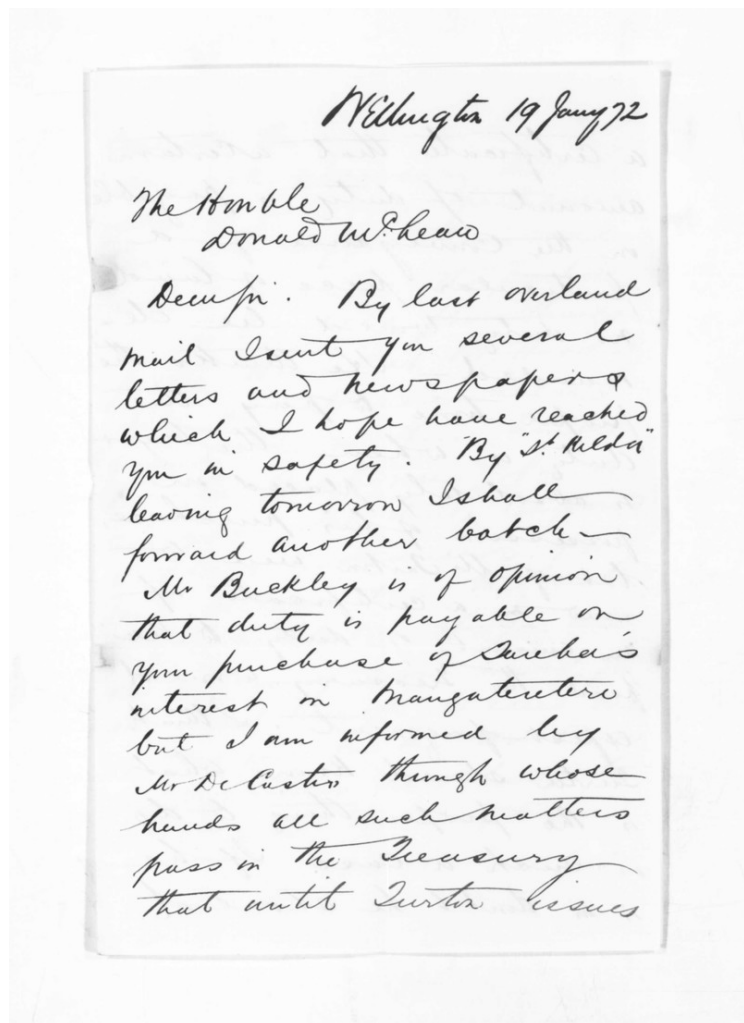 Wellington 19 Jany 72
The Honble
Donald McLean
Dear Sir. By last overland
mail I sent you several
letters and newspapers
which I hope have reached
you in safety. By "St Kilda"
leaving tomorrow I shall
forward another batch —
Mr Buckley is of opinion
that duty is payable on
your purchase of
interest in Mangateretere
but I am informed by
Mr De Castro through whose
hands all such matters
pass in the Treasury
that until Turton issues